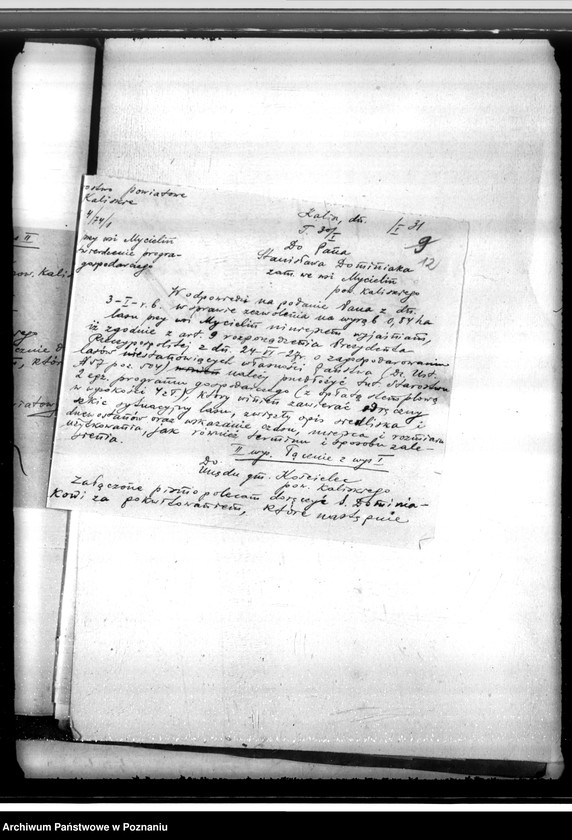 ostwo powiatowe
Kaliskie
4/74/1
Kalisz, dn. /I 31
9
12
przy wsi Mycielin
twierdzenie progra-
gospodarczego
Do Pana
Stanisława Dominiaka
zam. we wsi Mycielin
pow. Kaliskiego
W odpowiedzi na podanie Pana z dn.
3-I-r.b. w sprawie zezwolenia na wyrąb 0,84 ha
lasu przy wsi Mycielin niniejszem wyjaśniam,
iż zgodnie z art. 9 rozporządzenia Prezydenta
Rzeczypospolitej z dn. 24-VI-27r. o zagospodarowaniu
lasów niestanowiących własności Państwa (Dz. Ust.
№57 poz. 504) należy przedłożyć tut. Starostwu
2 egz. programu gospodarczego (z opłatą stemplową
w wysokości 4zł.), który winien zawierać odręczny
szkic sytuacyjny lasu, zwięzły opis siedliska i
drzewostanów oraz wskazanie czasu, miejsca i rozmiaru
użytkowania, jak również terminu i sposobu zale-
sienia.
II wyp. Łącznie z wyp I
Do
Urzędu gm. Kościelec
pow. Kaliskiego
Załączone pismo polecam doręczyć S. Dominia-
kowi za pokwitowaniem, które następnie
Archiwum Państwowe w Poznaniu